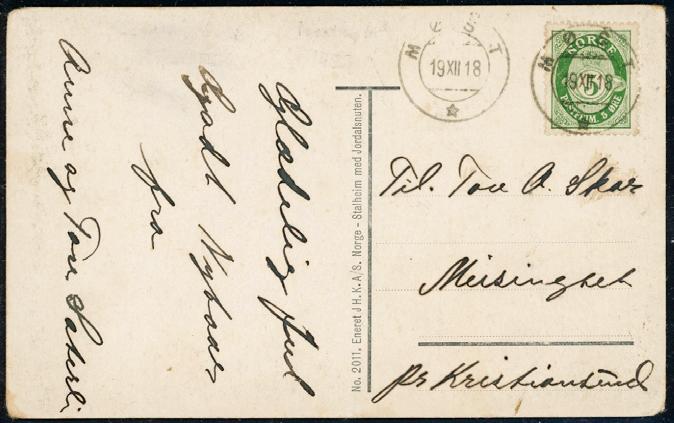 Glædelig Jul
Godt Nytaar
fra
Anne og Tore Sæterli
No. 2011. Eneret J.H.K.A/S. Norge - Stalheim med Jordalsnuten.
19XII18
NORGE
5
POSTFRIM 5 ØRE
19XII18
Til. Tore A. Skar
Meisingset
pr Kristiansund